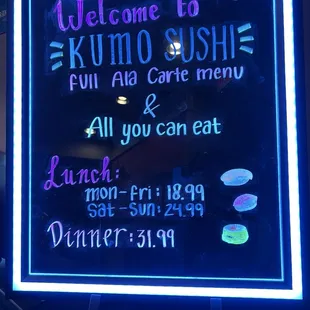 Welcome to
KUMO SUSHI
full Ala Carte menu
&
All you can eat
Lunch:
mon-fri: 18.99
Sat-Sun: 24.99
Dinner: 31.99